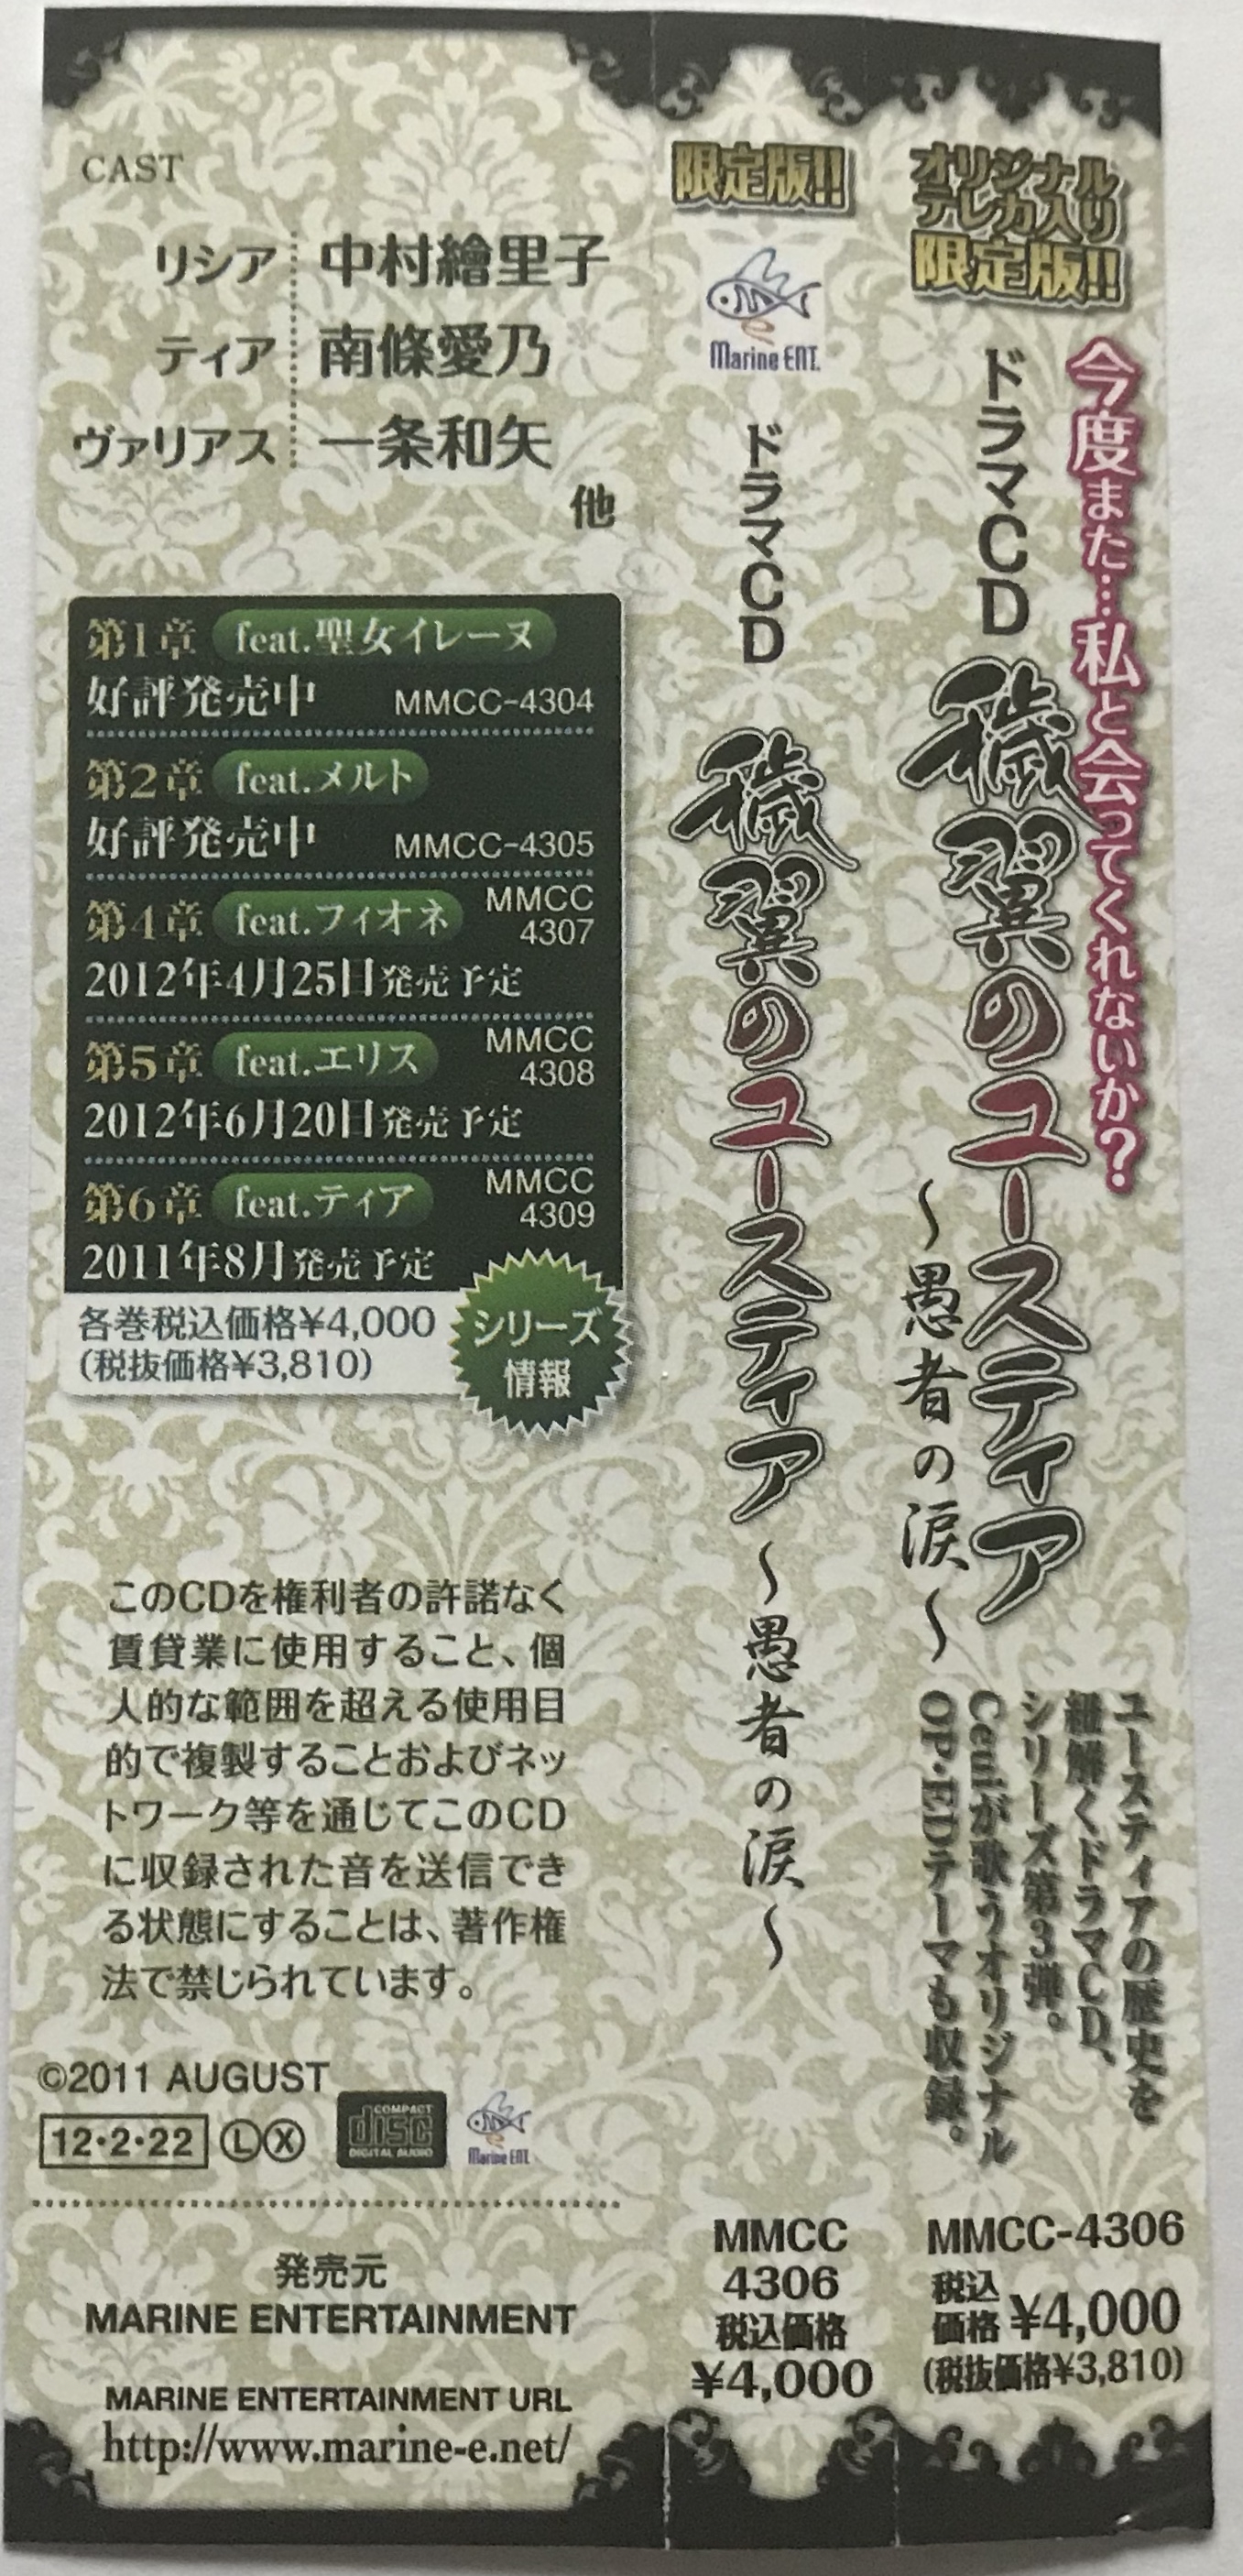 CAST
リシア 中村繪里子
ティア 南條愛乃
ヴァリアス 一条和矢
他
第1章 feat.聖女イレーヌ
好評発売中 MMCC-4304
第2章 feat.メルト
好評発売中 MMCC-4305
第4章 feat.フィオネ MMCC
4307
2012年4月25日発売予定
第5章 feat.エリス MMCC
4308
2012年6月20日発売予定
第6章 feat.ティア MMCC
4309
2011年8月発売予定
各巻税込価格¥4,000
(税抜価格¥3,810)
シリーズ
情報
このCDを権利者の許諾なく
賃貸業に使用すること、個
人的な範囲を超える使用目
的で複製することおよびネッ
トワーク等を通じてこのCD
に収録された音を送信でき
る状態にすることは、著作権
法で禁じられています。
©2011 AUGUST
12・2・22 Ⓛ Ⓧ
COMPACT
disc
DIGITAL AUDIO
Marine ENT.
発売元
MARINE ENTERTAINMENT
MARINE ENTERTAINMENT URL
http://www.marine-e.net/
限定版!!
Marine ENT.
ドラマCD 穢翼のユースティア ～愚者の涙～
MMCC
4306
税込価格
¥4,000
オリジナル
テレカ入り
限定版!!
今度また…私と会ってくれないか?
ドラマCD 穢翼のユースティア
～愚者の涙～
ユースティアの歴史を
紐解くドラマCD、
シリーズ第3弾。
Ceuiが歌うオリジナル
OP・EDテーマも収録。
MMCC-4306
税込
価格 ¥4,000
(税抜価格¥3,810)